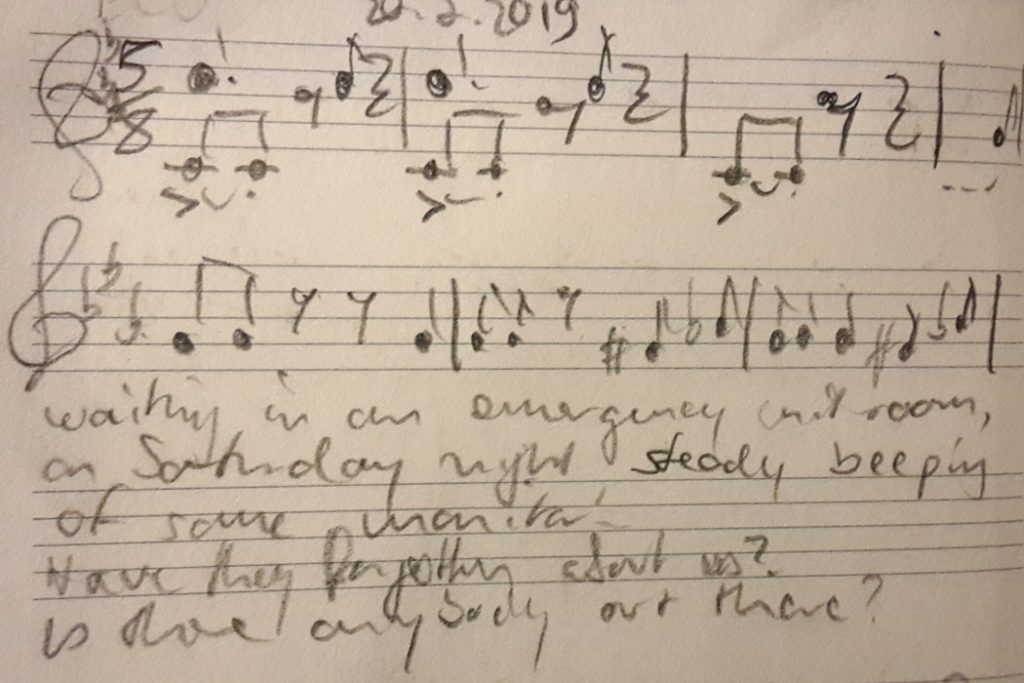 2.2019
5
8
waiting in an emergency unit room,
on Saturday night steady beeping
of some monitor.
Have they forgotten about us?
Is there anybody out there?